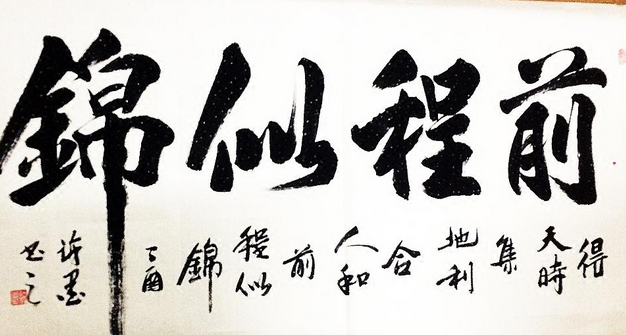 前程似錦
得天時集地利合人和前程似錦
丁酉
許墨書之